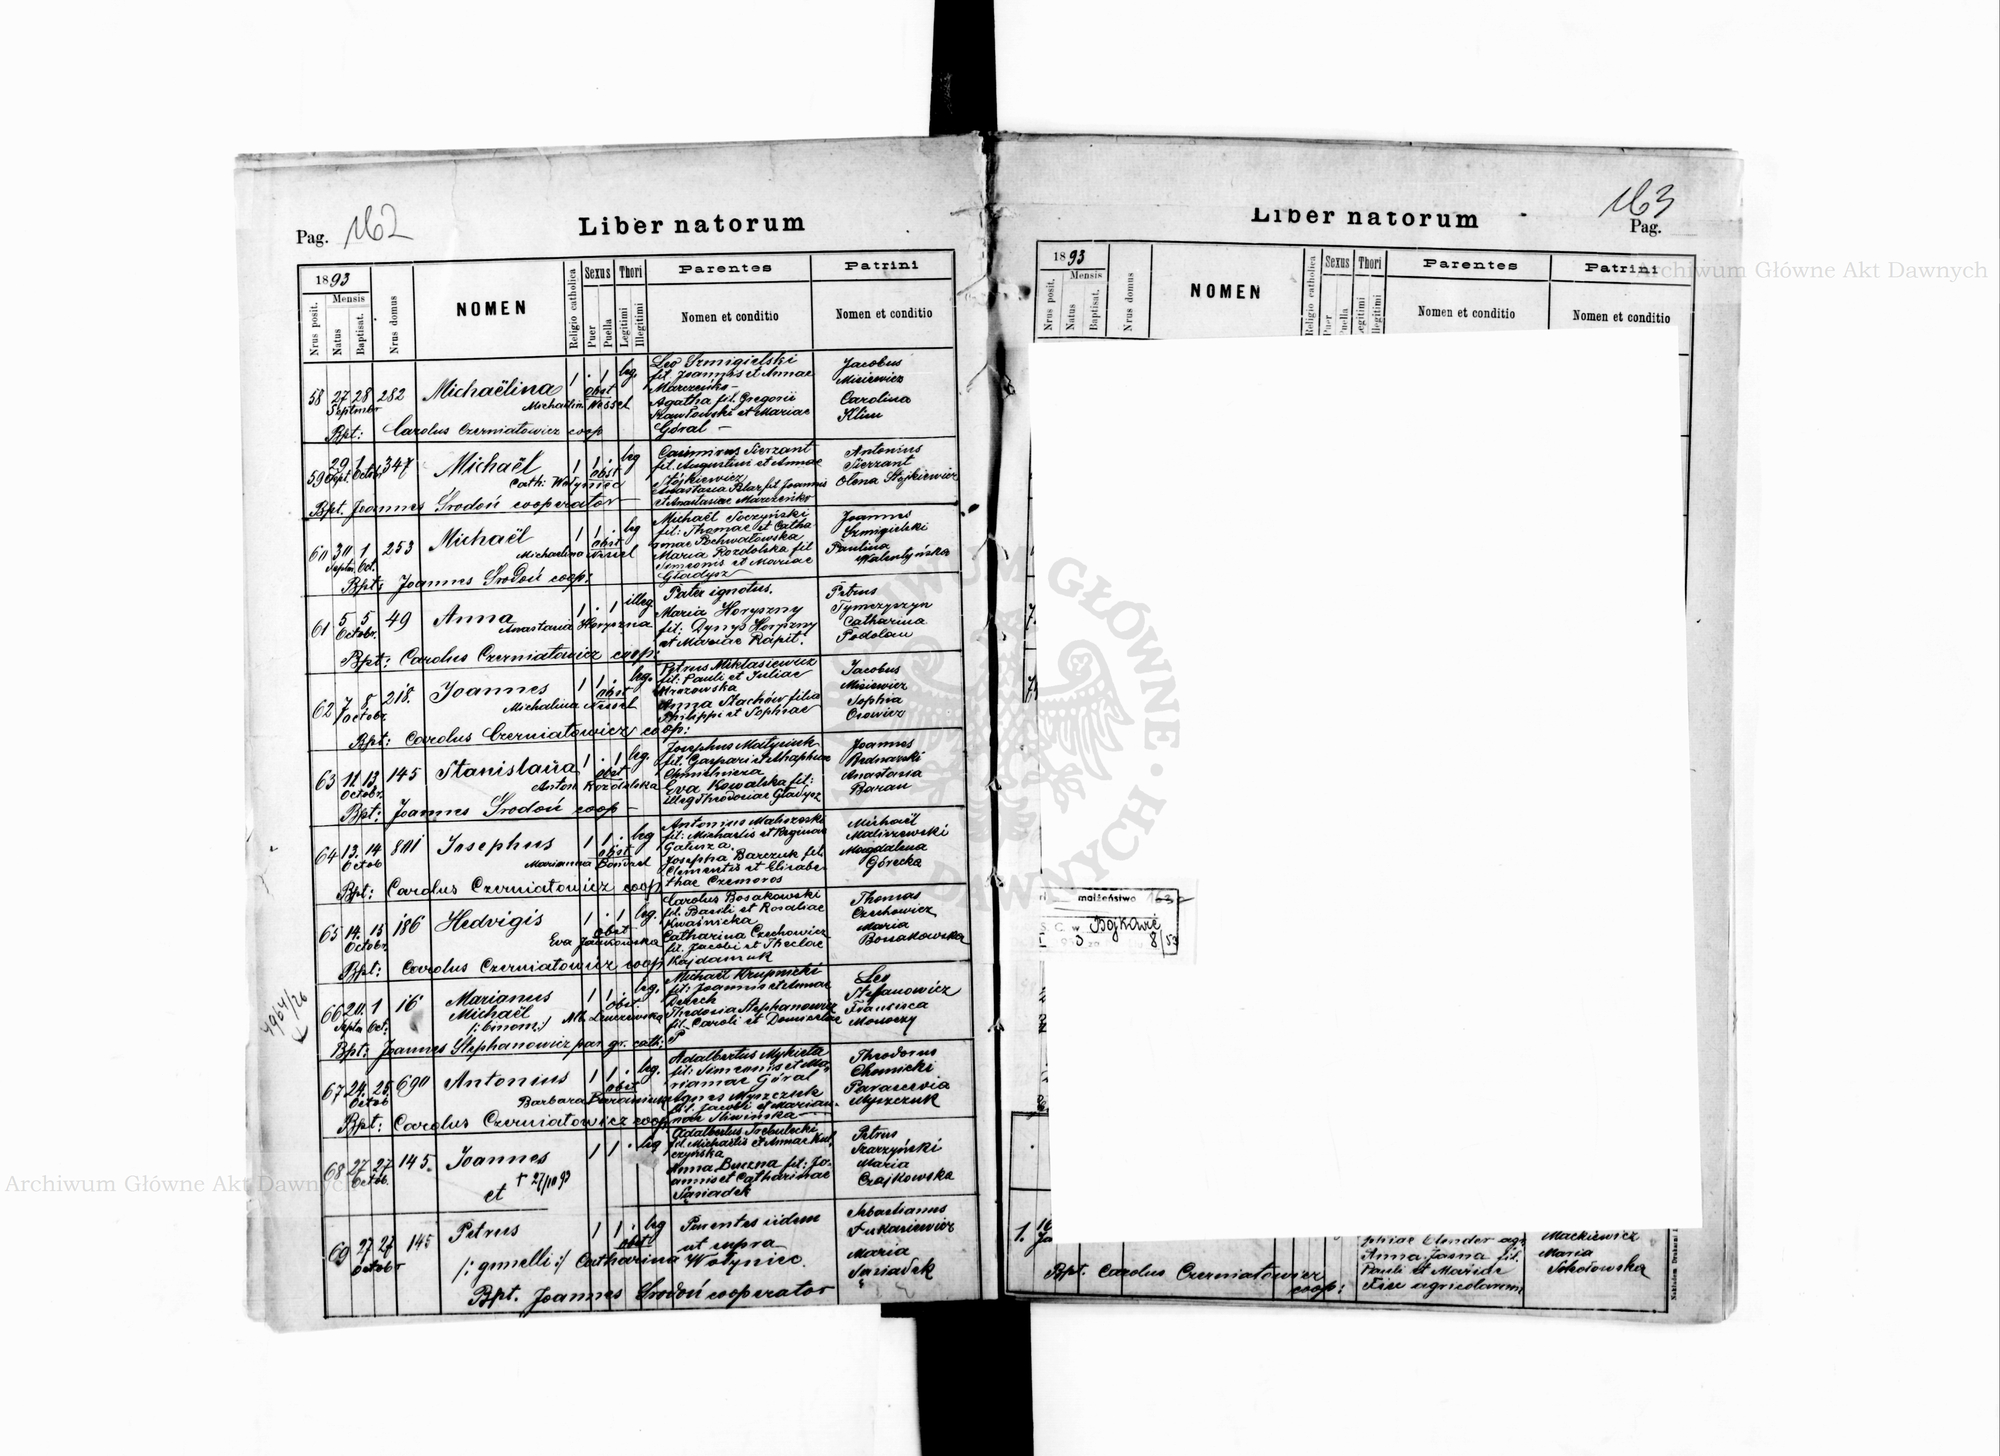 Archiwum Główne Akt Dawnych
Pag. 162
Liber natorum
1893
Mensis
Nrus posit.
Natus
Baptisat.
Nrus domus
NOMEN
Religio catholica
Sexus
Puer
Puella
Thori
Legitimi
Illegitimi
Parentes
Nomen et conditio
Patrini
Nomen et conditio
58 27 28 282 Michaëlina 1 . 1 leg.
Septembr
obst
Leo Szmigielski
fil. Joannis et Annae
Agatha fil. Gregorii
et Mariae
Góral –
Jacobus
Misiewicz
Carolina
Klim
Bpt: Carolus Czerniatowicz coop
59 29 1 347 Michaël 1 1 . leg
Sept. Octobr
obst
Cath: Wołyniec
Casimirus Sierzant
fil. Augustini et Annae
Stójkiewicz
Antonius
Sierzant
Olena Stojkiewicz
Bpt. Joannes Środoń cooperator –
60 30 1 253 Michaël 1 1 . leg
Septem. Oct.
obst
Michaelina Nessel
Michaël Soczyński
fil: Thomae et Catha
Maria Rozdolska fil
Simeonis et Mariae
Gładysz
Joannes
Szmigielski
Paulina
Walentyńska
Bpt: Joannes Środoń coop:
61 5 5 49 Anna 1 . 1 illeg.
Octobr.
Anastasia Horyszna
Pater ignotus.
Maria Horyszny
fil: Dynys Horyszny
et Mariae Rapit.
Petrus
Tymczyszyn
Catharina
Podolan
Bpt: Carolus Czerniatowicz coop:
62 7 8 218. Joannes 1 1 . leg.
Octobr.
obst
Michalina Nessel
Petrus Miklasiewicz
fil: Pauli et Juliae
Mrozowska
Anna Stachów filia
Philippi et Sophiae
Jacobus
Misiewicz
Sophia
Bpt: Carolus Czerniatowicz coop:
63 11. 13. 145 Stanislava 1 . 1 leg.
Octobr.
obst
Anton Rozdolska
Josephus Matysiuk
Eva Kowalska fil:
illeg Theodosiae Gładysz
Joannes
Bednarski
Anastasia
Baran
Bpt: Joannes Środoń coop –
64 13. 14 801 Josephus 1 1 . leg
Octob
obst
Marianna Bondzel
Antonius Maliszeski
fil: Michaelis et Reginae
Galusza.
Josepha Barczuk fil.
Clementis et Elisabe-
thae Czemoros
Michaël
Maliszewski
Magdalena
Górecka
Bpt: Carolus Czerniatowicz coop
65 14. 15 186 Hedvigis 1 . 1 leg.
Octobr.
obst
Eva Jankowska
Carolus Bosakowski
fil. Basili et Rosaliae
Kwaśnicka
Catharina Czechowicz
fil. Jacobi et Theclae
Kajdaniuk
Thomas
Czechowicz
Maria
Bosakowska
Bpt: Carolus Czerniatowicz coop
66 20. 1 16 Marianus 1 1 . leg.
Septem Oct.
Michaël
obst.
/: binom:/
Michaël Krupnicki
fil: Joannis et Annae
Theodosia Stephanowicz
fil. Caroli et
Leo
Stefanowicz
Francisca
Bpt: Joannes Stephanowicz par gr. cath:
4964/26
67 24. 25. 690 Antonius 1 1 . leg.
Octob
obst
Barbara Baraniuk
Adalbertus Mykieta
fil: Simeonis et Ma-
riannae Góral
Agnes Myszczuk
fil. Jacobi et Marian-
nae Śliwińska –
Theodorus
Chomicki
Parascevia
Myszczuk
Bpt: Carolus Czerniatowicz coop
68 27 27 145. Joannes 1 1 . leg
Octob.
† 27/10 93
et
Adalbertus Trebulecki
fil. Michaelis et Annae
Anna Buczna fil: Jo-
annis et Catharinae
Sąsiadek
Petrus
Szarzyński
Maria
Czajkowska
69 27 27 145 Petrus 1 1 . leg
Octobr
obst
/: gemelli :/ Catharina Wołyniec.
Parentes iidem
ut supra
Sebastianus
Łukasiewicz
Maria
Sąsiadek
Bpt. Joannes Środoń cooperator
Liber natorum
163
Pag.
1893
Mensis
Nrus posit.
Natus
Baptisat.
Nrus domus
NOMEN
Religio catholica
Sexus
Puer
Puella
Thori
Legitimi
Illegitimi
Parentes
Nomen et conditio
Patrini
Nomen et conditio
małżeństwo 163
S. C. w Bojkowie
8/53
1. 16
phiae Elender agr.
Anna Jasna fil.
Pauli et Mariae
agricolarum
Mackiewicz
Maria
Sokołowska
Bpt. Carolus Czerniatowicz
coop:
ARCHIWUM GŁÓWNE AKT DAWNYCH
Archiwum Główne Akt Dawnych
Archiwum Główne Akt Dawnych